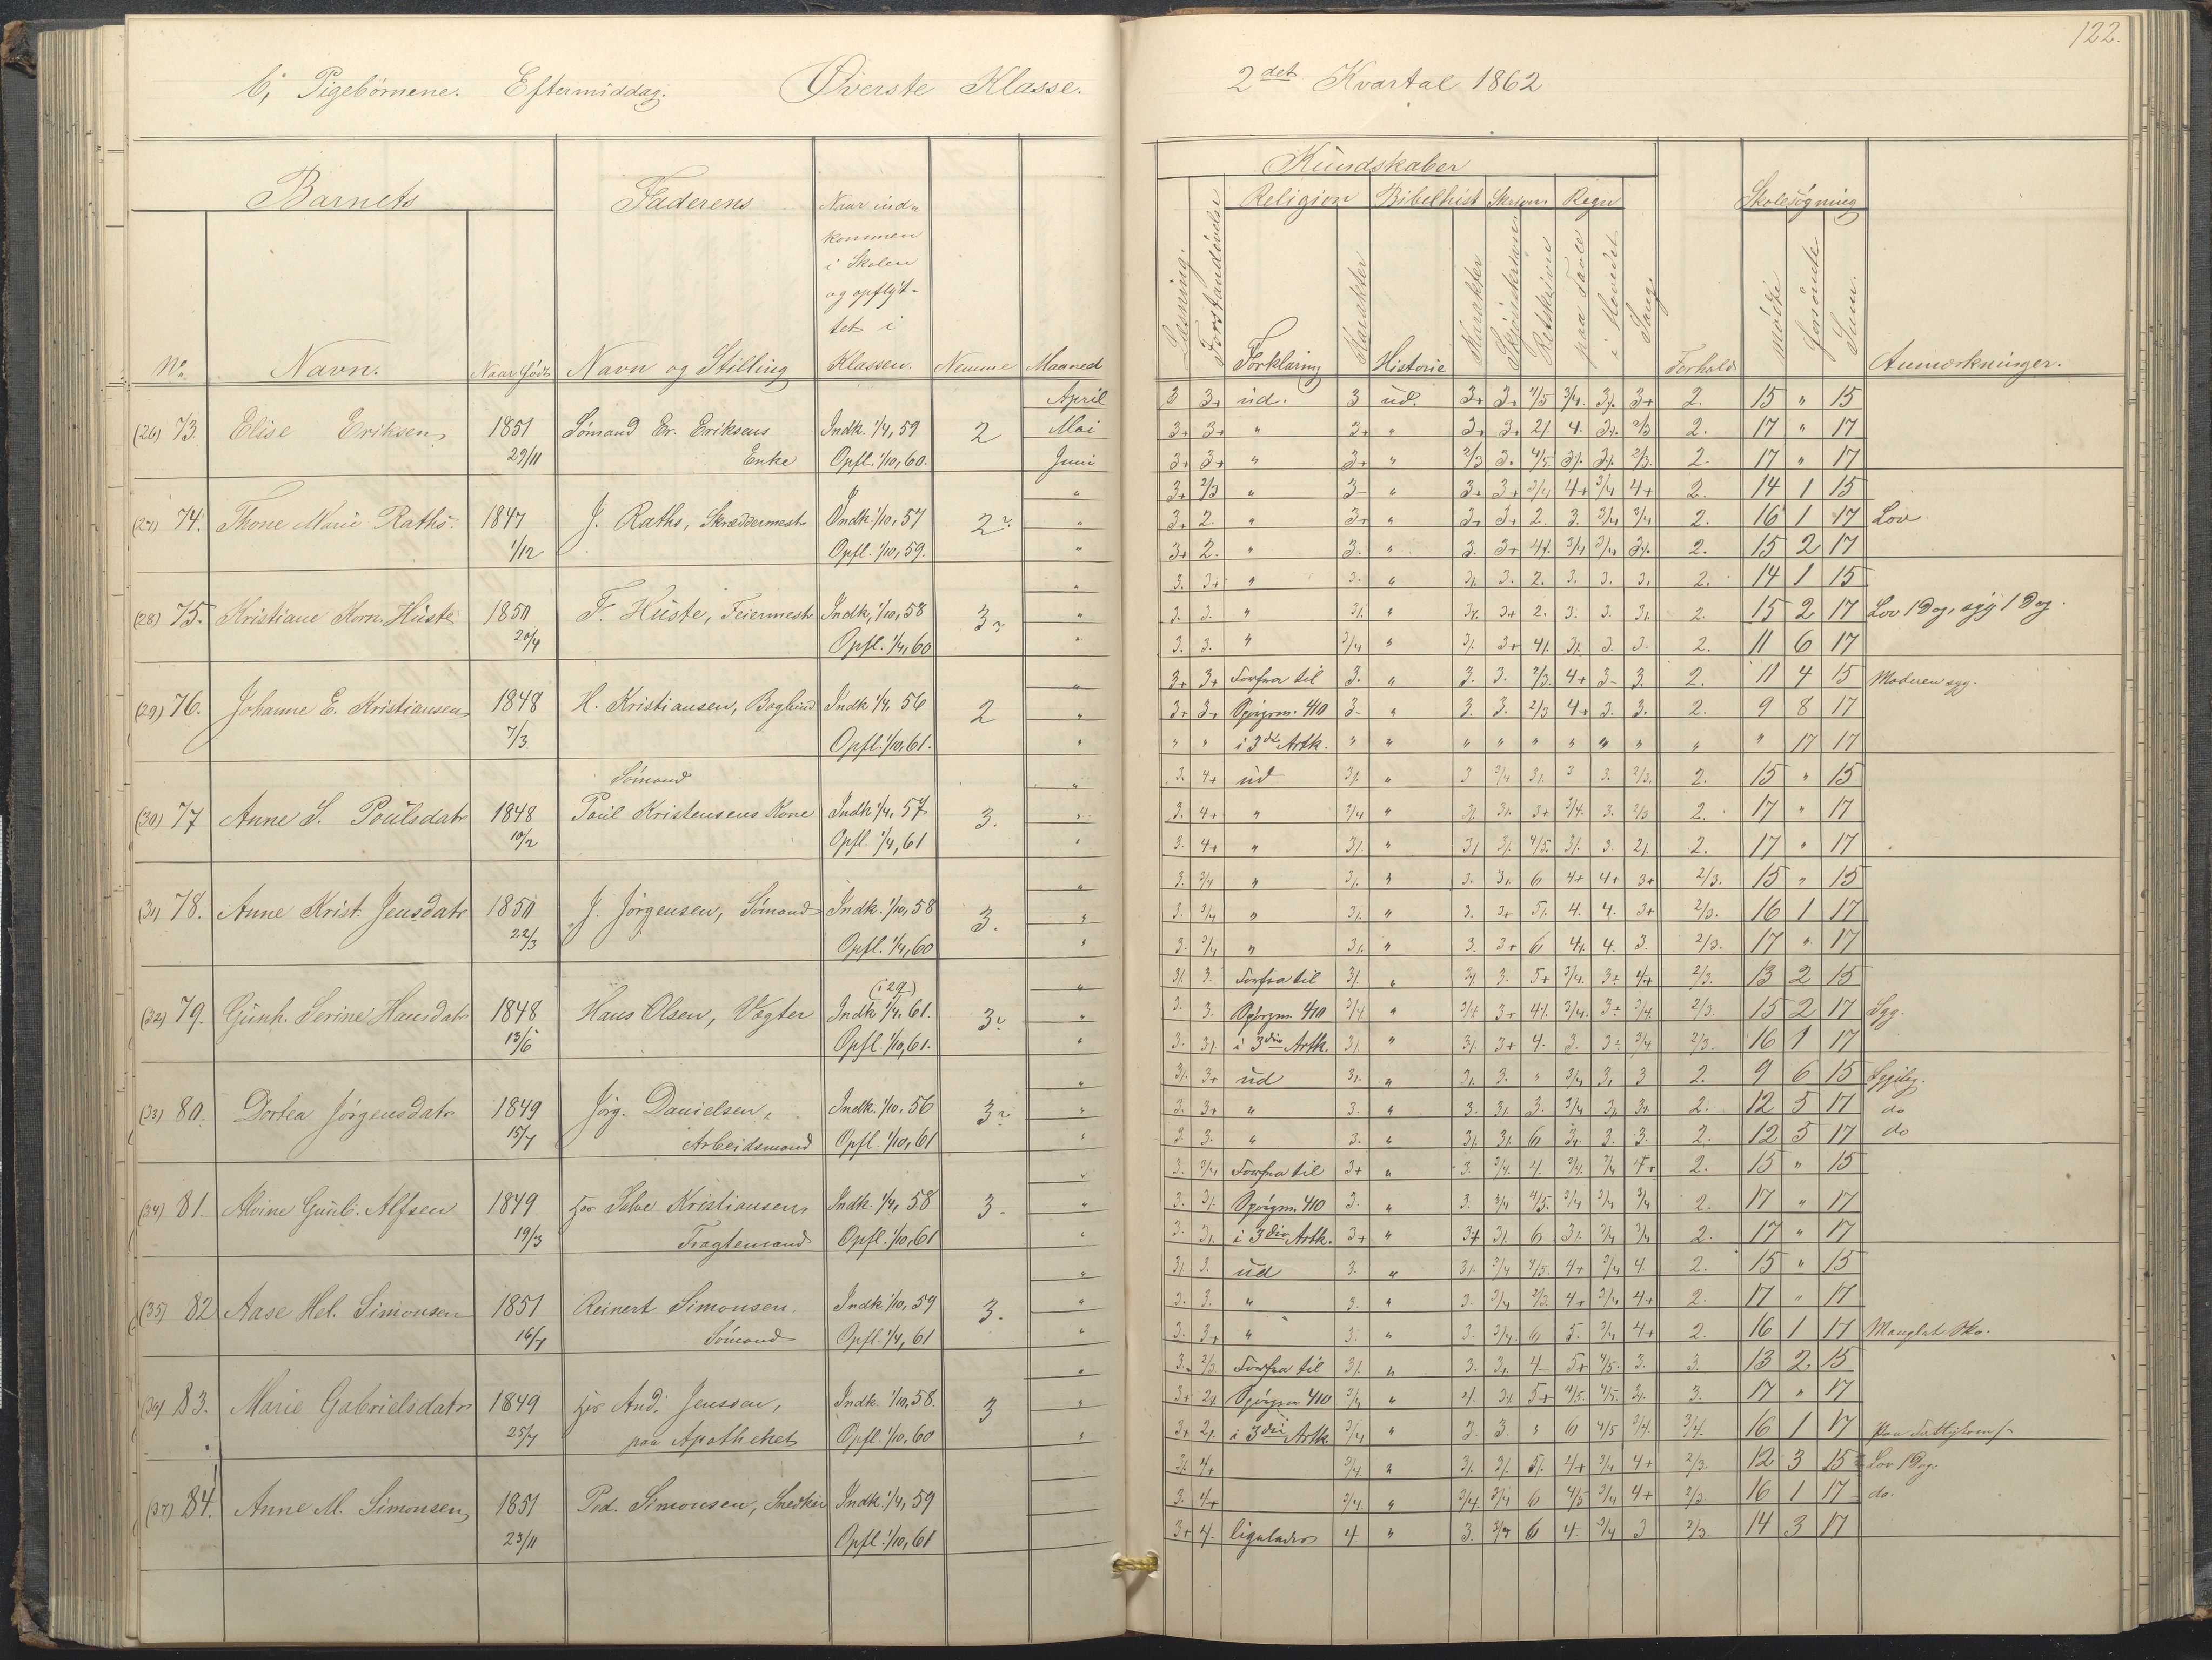 122.
b, Pigebørnene. Eftermiddag. Øverste Klasse.
2det Kvartal 1862
Barnets
Faderens
Naar ind-
kommen
i Skolen
og opflyt-
tet i
Klassen.
No. Navn. Naar født Navn og Stilling Nemme Maaned
Kundskaber
Religion Bibelhist Skrivn. Regn
Læsning. Forstandsøvelse Forklaring Karakter Historie Karakter Skjønskrivn Retskrivn paa Tavle i Hovedet Sang.
Forhold
Skolesøgning
mødte forsømte Sum.
Anmærkninger.
April
3 3+ ud. 3 ud. 3+ 3+ 4/5 3/4. 3/. 3+ 2. 15 " 15
(26) 73. Elise Eriksen, 1851 Sømand Er. Eriksens Indk. 1/4, 59 2 Mai
3+ 3+ " 3+ " 3+ 3+ 2/. 4. 3/. 2/3 2. 17 " 17
29/11 Enke Opfl. 1/10, 60. Juni
3+ 3+ " 3+ " 2/3 3. 4/5 3/. 3/. 2/3. 2. 17 " 17
3+ 2/3 " 3- " 3+ 3+ 3/4 4+ 3/4 4+ 2. 14 1 15
(27) 74. Thone Marie Raths. 1847 J. Raths, Skræddermest. Indk. 1/10, 57 2 "
3+ 2. " 3+ " 3+ 3+ 2. 3. 3/4 3/4 2. 16 1 17 Lov
1/12 Opfl. 1/10, 59. "
3+ 2. " 3. " 3. 3+ 4/. 3/4 3/4 3/. 2. 15 2 17
3. 3+ " 3. " 3/. 3. 2. 3. 3. 3. 2. 14 1 15
(28) 75. Kristiane Korn. Hüste 1850 F. Hüste, Feiermest. Indk, 1/10, 58 3 "
3. 3. " 3/. " 3/. 3+ 2. 3. 3. 3/. 2. 15 2 17 Lov 1 Dag, syg 1 Dag.
20/4 Opfl. 1/4, 60 "
3. 3. " 3/4 " 3/. 3+ 4/. 3/. 3. 3. 2. 11 6 17
3+ 3+ Forfra til 3. " 3. 3. 2/3. 4+ 3- 3. 2. 11 4 15 Moderen syg.
(29) 76. Johanne E. Kristiansen 1848 H. Kristiansen, Bogbind Indk 1/4, 56 2 "
3+ 3+ Spørgsm. 410 3- " 3. 3. 2/3 4+ 3. 3. 2. 9 8 17
7/3. Opfl. 1/10, 61. "
" " i 3die Artk. " " " " " " " " " " 17 17
Sømand
3. 4+ ud 3/. " 3 3/4 3/. 3 3. 2/3. 2. 15 " 15
(30) 77 Anne S. Poulsdatr 1848 Poul Kristensens Kone Indk 1/4, 57 3. "
3. 4+ " 3/4 " 3/. 3/. 3+ 3/4. 3. 2/3 2. 17 " 17
10/2 Opfl. 1/4, 61 "
3. 4+ " 3/. " 3/. 3/. 4/5. 3/. 3. 2/. 2. 17 " 17
3. 3/4 " 3/. " 3. 3/. 6 4+ 4+ 3+ 2/3. 15 " 15
(31) 78. Anne Krist. Jensdatr 1850 J. Jørgensen, Sømand Indk. 1/10, 58 3. "
3. 3/4 " 3/. " 3. 3+ 5/. 4. 4. 3+ 2/3. 16 1 17
22/3 Opfl. 1/4, 60 "
3. 3/4 " 3/. " 3. 3+ 6 4/. 4. 3. 2/3. 17 " 17
3/. 3. Forfra til 3/. " 3/. 3. 5+ 3/4. 3± 4+ 2/3. 13 2 15
(32) 79. Gunh. Serine Hansdatr 1848 Hans Olsen, Vægter Indk 1/4, 61. 3 "
3. 3. Spørgsm. 410 3/4 " 3/4 3+ 4/. 3/4. 3± 3/4. 2/3. 15 2 17 Syg.
13/6 Opfl. 1/10, 61. "
3. 3/. i 3die Artk. 3/. " 3/. 3+ 4. 3. 3± 3/4. 2/3. 16 1 17
3/. 3+ ud 3/. " 3/. 3. " 3/4 3/. 3 2. 9 6 15 Sygelig.
(33) 80. Dortea Jørgensdatr 1849 Jørg. Danielsen, Indk. 1/10, 56 3 "
3. 3+ " 3. " 3. 3/. 3. 3/4 3/. 3+. 2. 12 5 17 do
15/7 Arbeidsmand Opfl. 1/10, 61 "
3. 3. " 3. " 3/. 3/. 6 3/. 3. 3. 2. 12 5 17 do
3. 3/4 Forfra til 3+ " 3. 3/4. 4. 3/4. 3/4 4+ 2. 15 " 15
(34) 81. Alvine Gunb. Alfsen 1849 hos Salve Kristiansen, Indk. 1/4, 58 3. "
3. 3/. Spørgsm. 410 3. " 3. 3/4 4/5. 3/4 3/4 3/4 2. 17 " 17
19/3 Fragtemand Opfl. 1/10, 61 "
3. 3/. i 3die Artk. 3+ " 3+ 3/. 6 3/. 3/4 3/4 2. 17 " 17
3/. 3. ud 3. " 3/. 3/4 4/5. 4+ 3/4 4. 2. 15 " 15
(35) 82 Aase Hel. Simonsen 1851 Reinert Simonsen. Indk 1/10, 59 3. "
3. 3. " 3. " 3. 3/4 2/3. 4+ 3/4 4+ 2. 17 " 17
16/7 Sømand Opfl. 1/4, 61 "
3. 3+ " 3. " 3. 3/4. 6 5. 3/4 4+ 2. 16 1 17 Manglet Sko.
3. 2/3. Forfra til 3/. " 3. 3+. 4- 5+ 4/5. 3. 3. 13 2 15
(36) 83. Marie Gabrielsdatr 1849 hos And. Jenssen, Indk. 1/10, 58. 3 "
3+ 2/. Spørgsm 410 3/4 " 4. 3/. 5+ 4/5. 4/5. 3/. 3. 17 " 17
25/7 paa Apotheket Opfl. 1/10, 60 "
3+ 2/. i 3die Artk 3/4 " 3. 3. " 6 4/5 3/4. 3/4. 16 1 17
3/. 4+ 3/4. " 3/. 3/. 5/. 4+ 3/4 4+ 2/3. 12 3 15 Lov 1 Dag.
(37) 84. Anne M. Simonsen, 1851 Ped. Simonsen, Snedker Indk. 1/4, 59
3. 4+ 3/4 " 3/4. 3/4 6 4/5 3/4 4+ 2/3. 16 1 17 do.
23/11 Opfl. 1/10, 61
3+ 4. ligeledes 4 " 3. 3/4 6 4. 3/4 3 2/3. 14 3 17